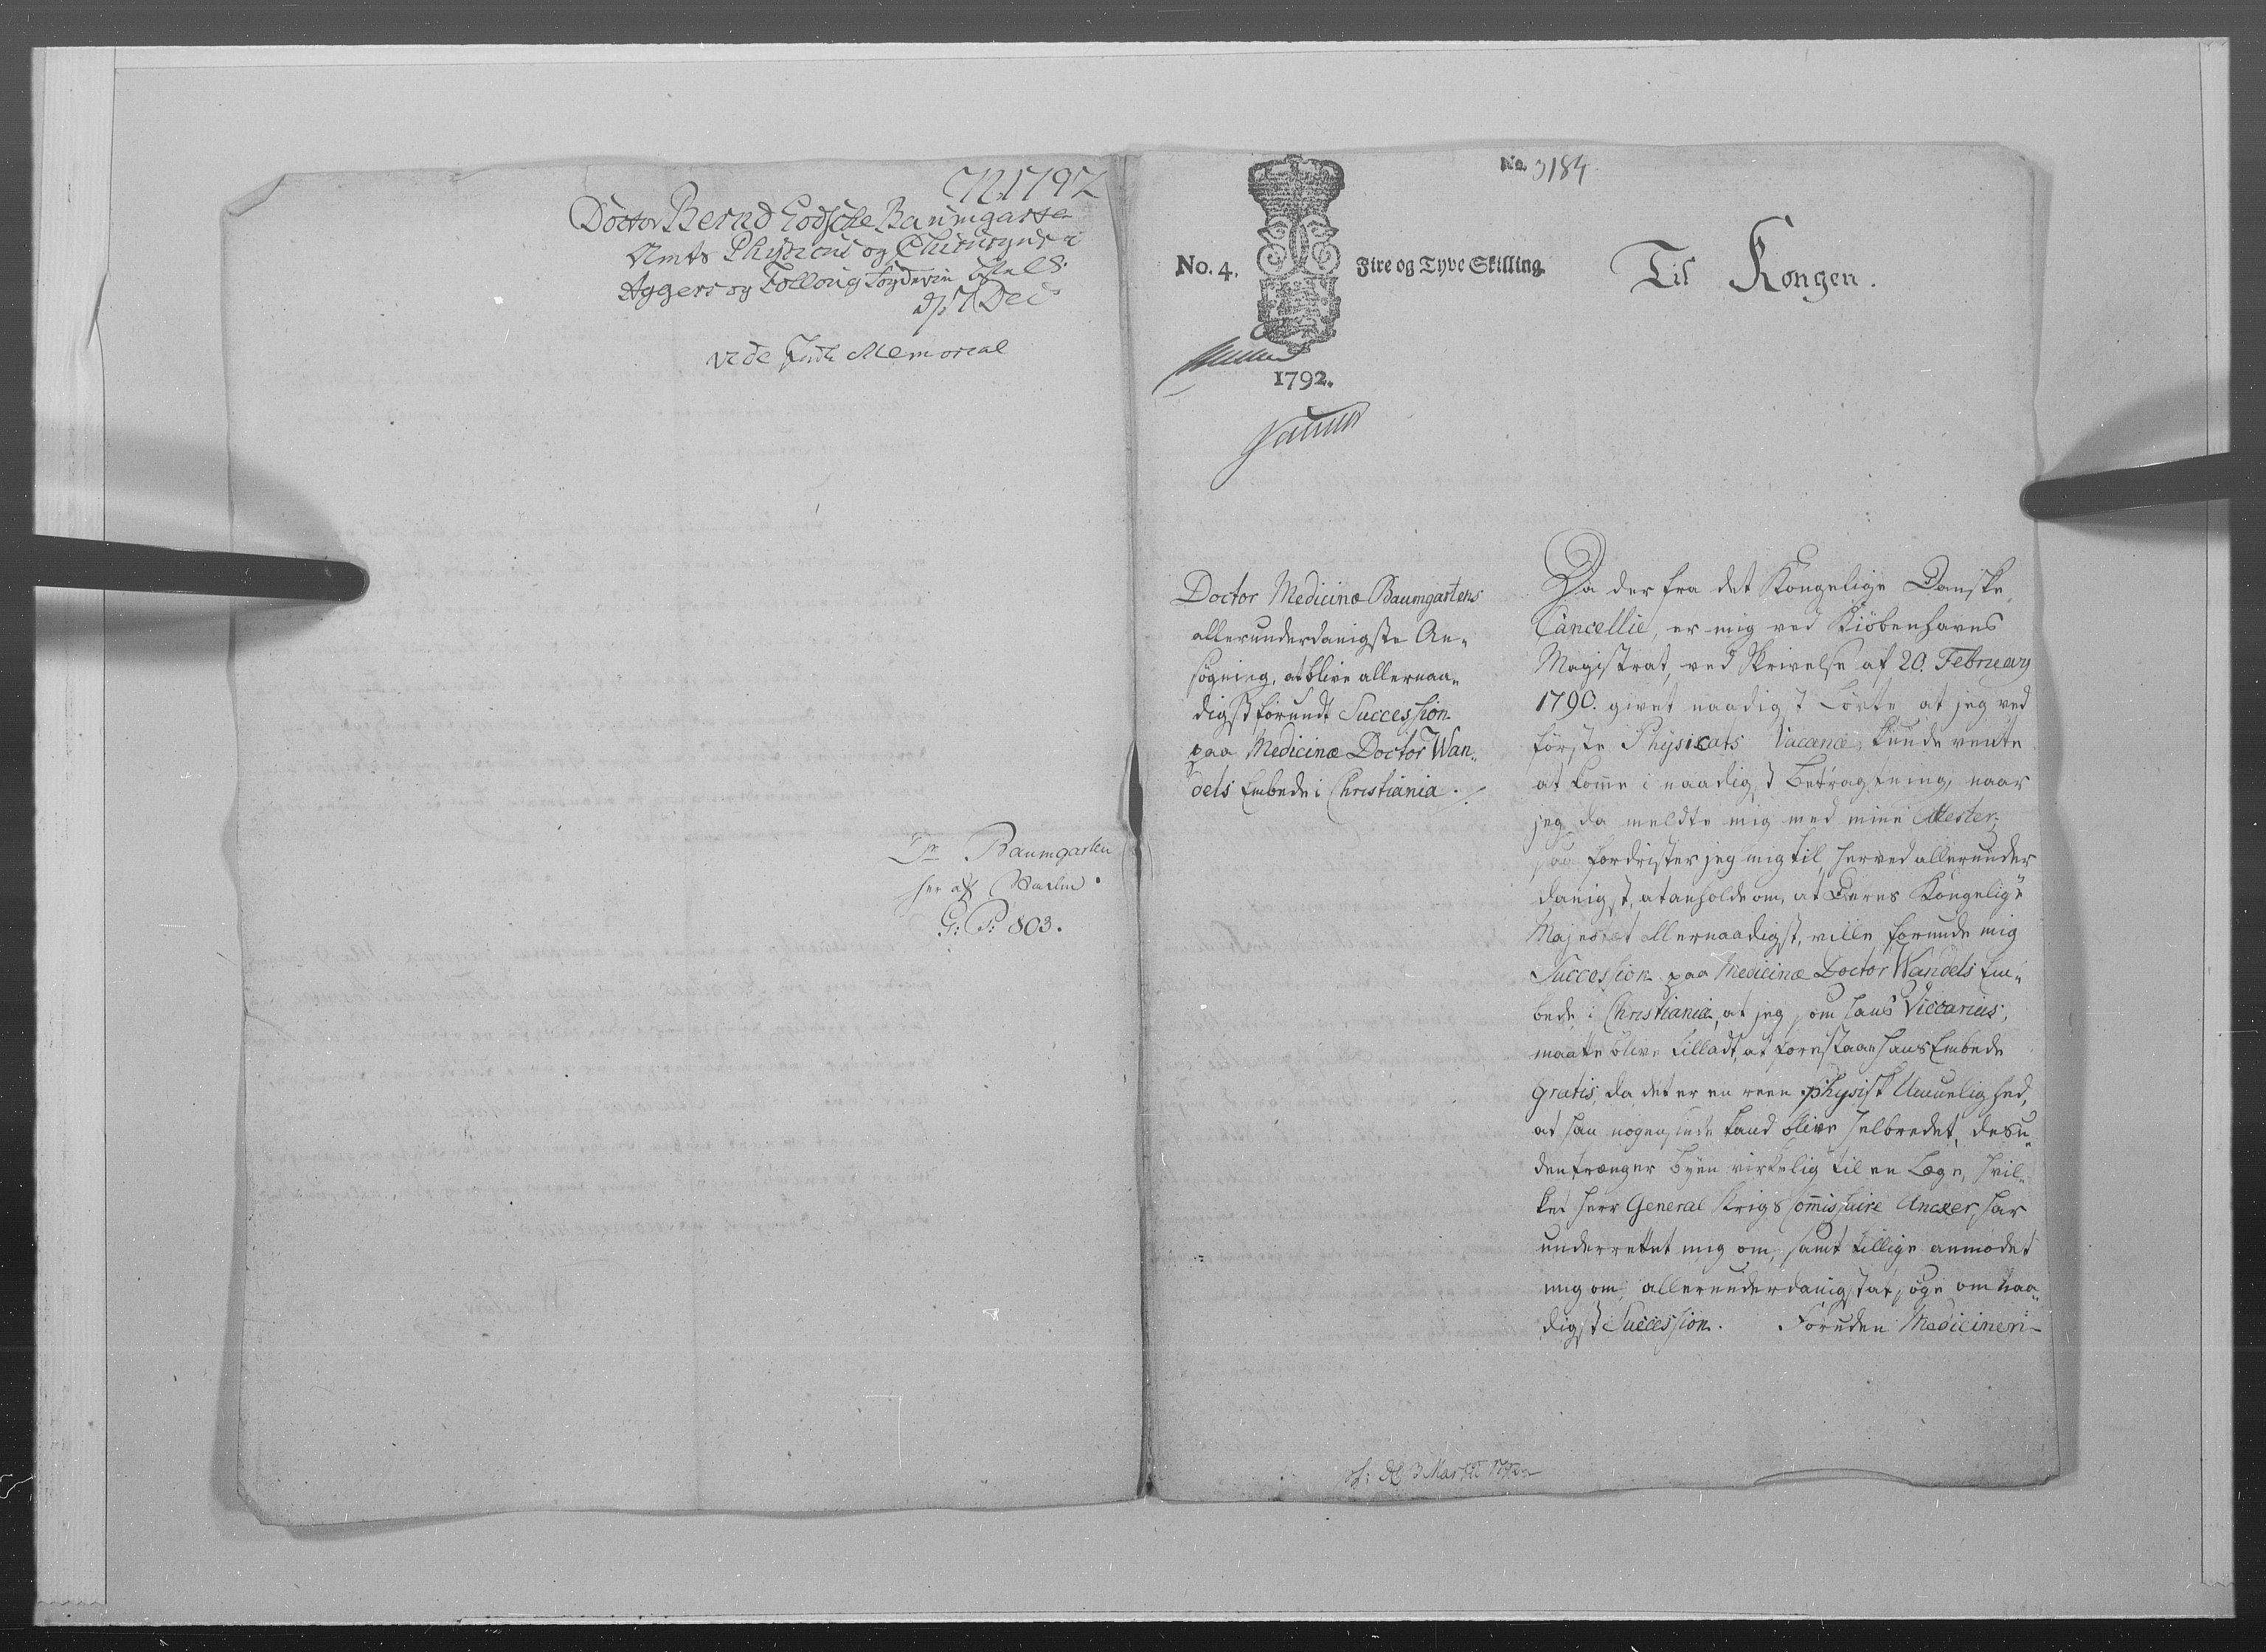 1792
Doctor Bernd Godsche Baumgarten
Amts Physicus og Chirurgus i
Aggers og Folloug Fogderie
7 Dec
vide Memorial
Dr Baumgarten
her af
G: P: 803.
No. 3184
No. 4. Fire og Tyve Skilling.
1792.
Til Kongen.
Doctor Medicinæ Baumgartens
allerunderdanigste An-
søgning, at blive allernaa-
digst forundt Succession
paa Medicinæ Doctor Wan-
dels Embede i Christiania.
Da der fra det Kongelige Danske
Cancellie, er mig ved Kiöbenhavns
Magistrat, ved Skrivelse af 20. February
1790. givet naadigst Löfte at jeg ved
förste Physicats Vacance, kunde vente
at kome i naadigst Betragtning, naar
jeg da meldte mig med mine Attester;
saa fordrister jeg mig til, herved allerunder
danigst, at anholde om, at Deres Kongelige
Majestæt allernaadigst, ville forunde mig
Succession paa Medicinæ Doctor Wandels Em-
bede i Christiania, at jeg som hans Viccarius,
maatte blive tilladt, at forestaae hans Embede
gratis, da det er en reen physisk Umuelighed,
at han nogensinde kand blive helbredet, desu-
den trænger Byen virkelig til en Læge, hvil-
ket Herr General Krigs Comissaire Ancker, har
underrettet mig om, samt tillige anmodet
mig om, allerunderdanigst at söge om naa-
digst Succession. Foruden Medicinen
3 Martii 1792